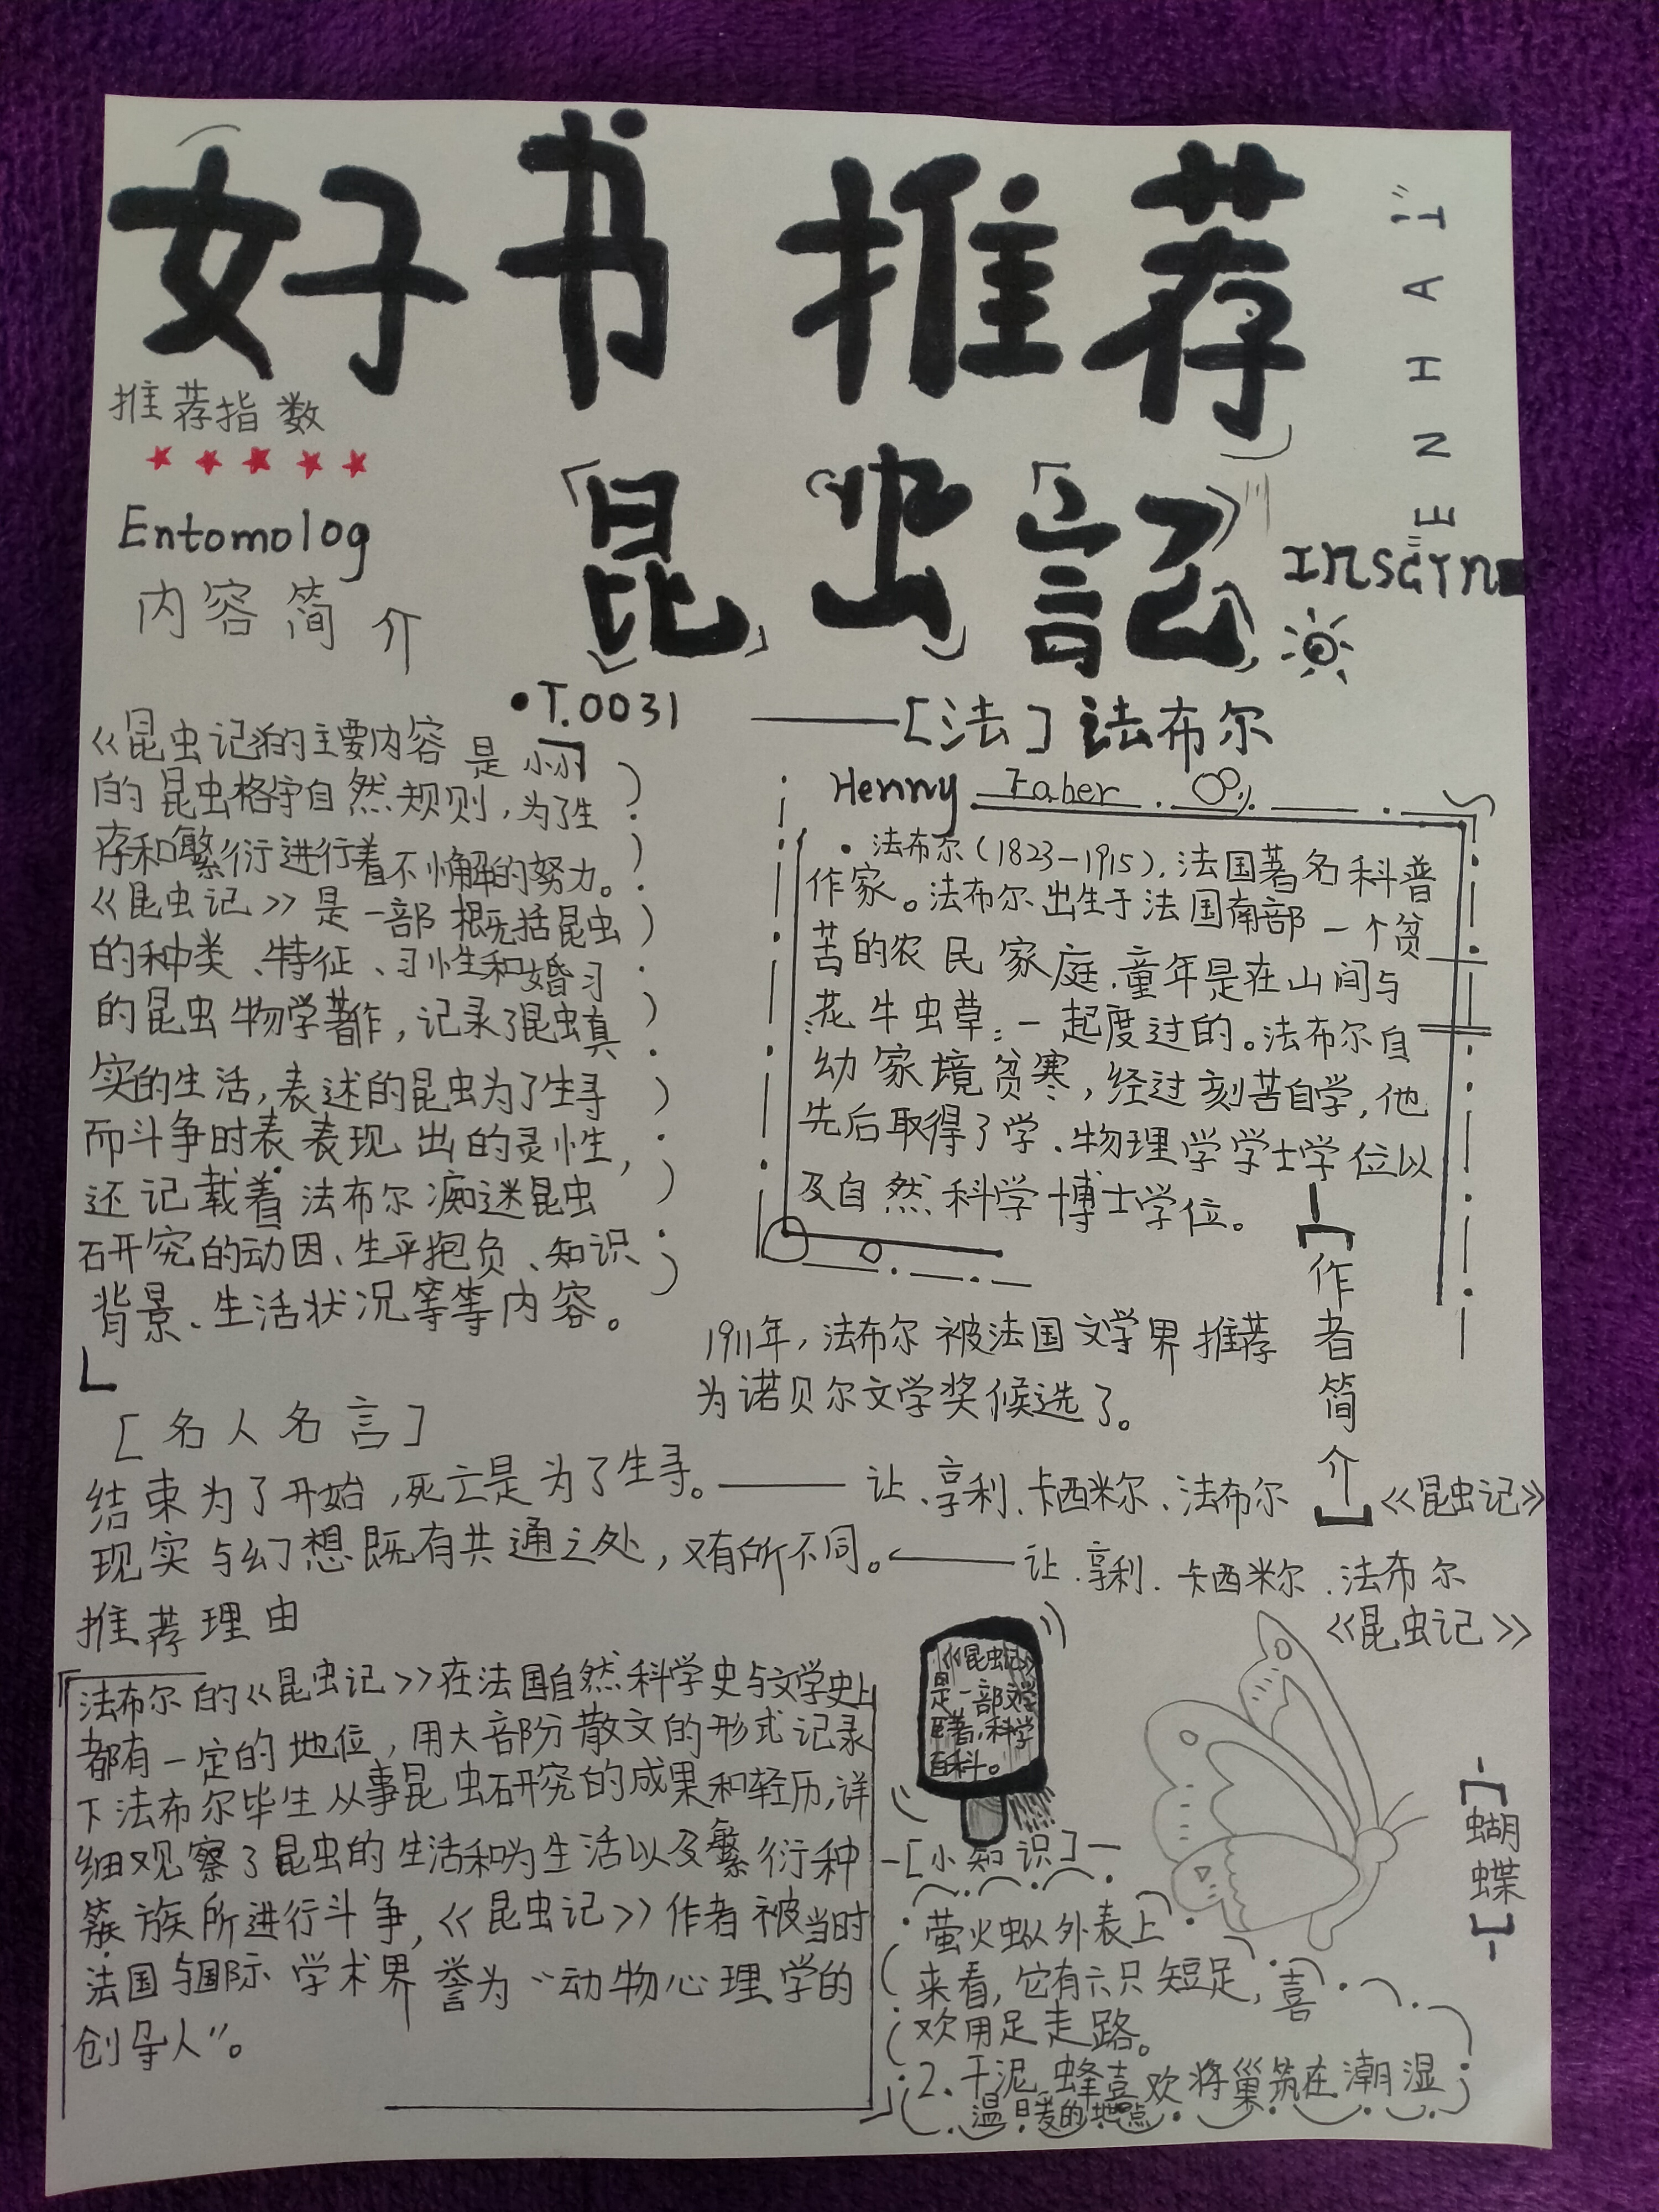 好书推荐
推荐指数
「昆虫記」
Entomolog
内容简介
•T.0031
——[法]法布尔
《昆虫记》的主要内容是小小
的昆虫恪守自然规则,为了生
存和繁衍进行着不懈的努力。
《昆虫记》是一部概括昆虫
的种类、特征、习性和婚习
的昆虫物学著作,记录了昆虫真
实的生活,表述的昆虫为了生寻
而斗争时表表现出的灵性,
还记载着法布尔痴迷昆虫
研究的动因、生平抱负、知识
背景、生活状况等等内容。
Henny Faber
•法布尔(1823-1915),法国著名科普
作家。法布尔出生于法国南部一个贫
苦的农民家庭.童年是在山间与
花牛虫草一起度过的。法布尔自
幼家境贫寒,经过刻苦自学,他
先后取得了学.物理学学士学位以
及自然科学博士学位。
1911年,法布尔被法国文学界推荐
为诺贝尔文学奖候选了。
【作者简介】
[名人名言]
结束为了开始,死亡是为了生寻。——让、享利、卡西米尔、法布尔《昆虫记》
现实与幻想既有共通之处,又有所不同。——让.享利.卡西米尔.法布尔
《昆虫记》
推荐理由
法布尔的《昆虫记》在法国自然科学史与文学史上
都有一定的地位,用大部分散文的形式记录
下法布尔毕生从事昆虫研究的成果和轻历,详
细观察了昆虫的生活和为生活以及繁衍种
族所进行斗争,《昆虫记》作者被当时
法国与国际学术界誉为“动物心理学的
创导人”。
《昆虫记》
是一部文学
巨著,科学
百科。
-[小知识]-
萤火虫从外表上
来看,它有六只短足,喜
欢用足走路。
2、干泥蜂喜欢将巢筑在潮湿
温暖的地点
-【蝴蝶】-